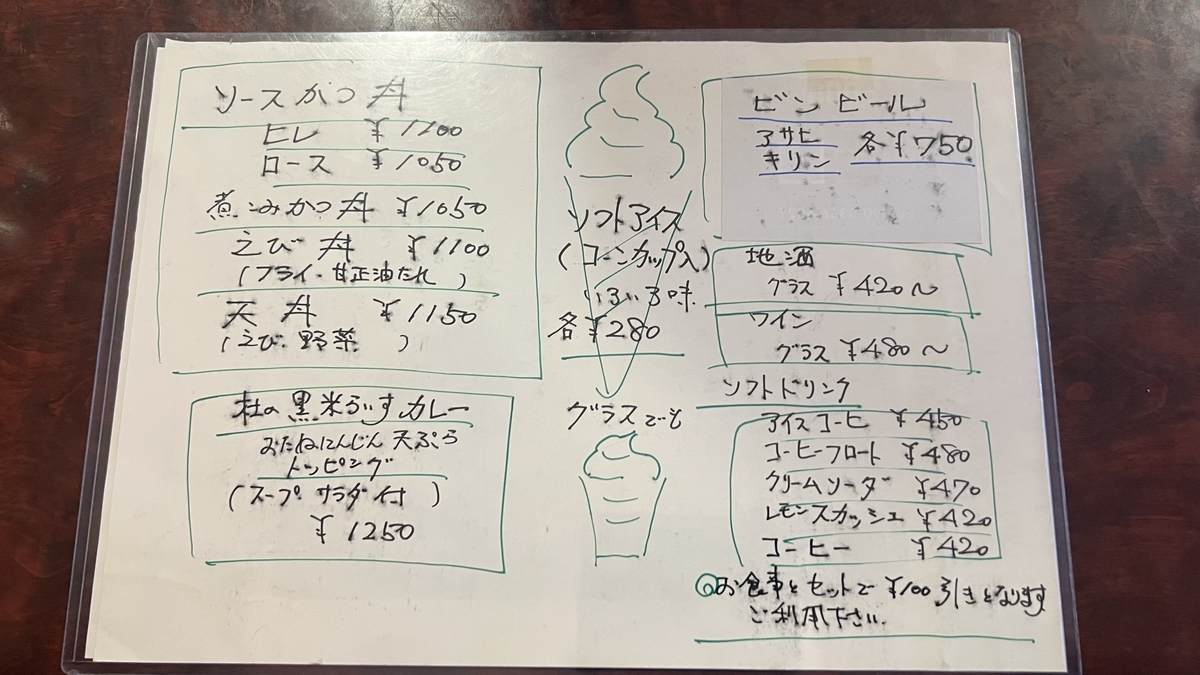 ソースかつ丼
ヒレ ¥1200
ロース ¥1050
煮こみかつ丼 ¥1050
えび丼 ¥1100
(フライ・甘正油たれ)
天丼 ¥1150
(えび、野菜)
杜の黒米らいすカレー
おたねにんじん天ぷら
トッピング
(スープ サラダ付)
¥1250
ソフトアイス
(コーンカップ入)
いろいろ味
各¥280
グラスでも
ビンビール
アサヒ
キリン 各¥750
地酒
グラス ¥420〜
ワイン
グラス ¥480〜
ソフトドリンク
アイスコーヒ ¥450
コーヒーフロート ¥480
クリームソーダ ¥470
レモンスカッシュ ¥420
コーヒー ¥420
◎お食事とセットで ¥100引きとなります
ご利用下さい.